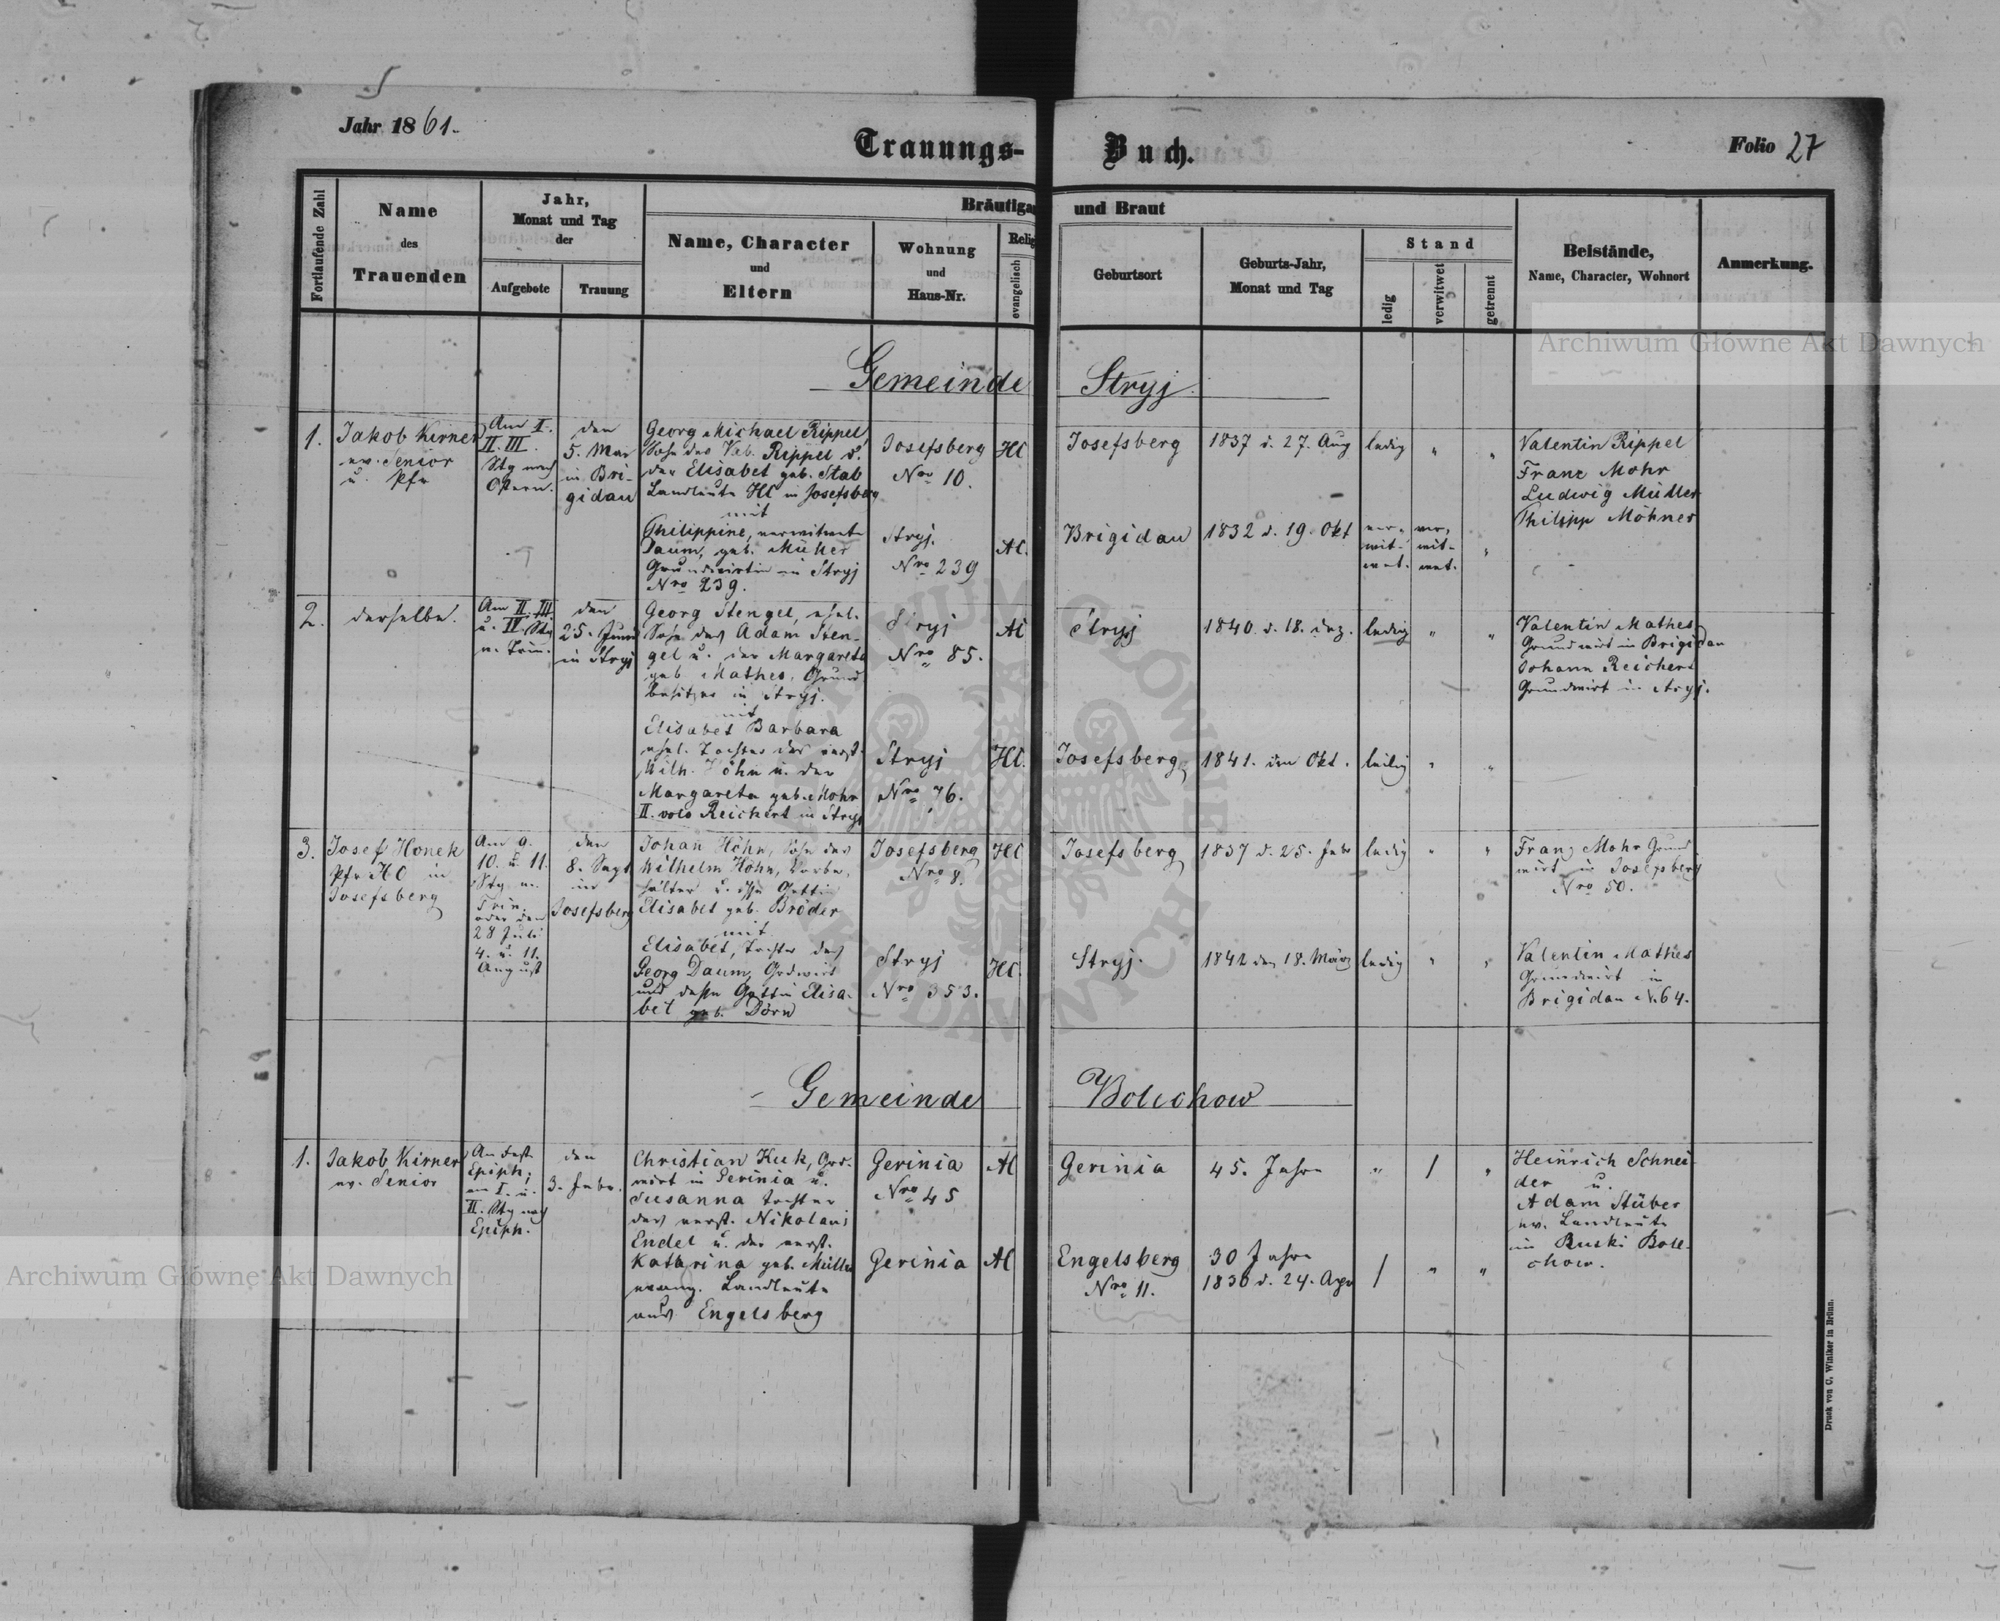 Jahr 1861.
Trauungs-Buch.
Folio 27
Fortlaufende Zahl
Name
des
Trauenden
Jahr,
Monat und Tag
der
Aufgebote
Trauung
Bräutiga
und Braut
Name, Character
und
Eltern
Wohnung
und
Haus-Nr.
Relig
evangelisch
Geburtsort
Geburts-Jahr,
Monat und Tag
Stand
ledig
verwitwet
getrennt
Beistände,
Name, Character, Wohnort
Anmerkung.
Archiwum Główne Akt Dawnych
Gemeinde Stryj
1.
Jakob Kirner
ev. Senior
u. Pfr
Am I.
II. III.
Stg nach
Ostern.
den
5. Mai
in Bri-
gidau
Georg Michael Rippel,
Sohn des Val. Rippel u.
der Elisabet geb. Stab
Landleute HC in Josefsberg
mit
Philippine, verwitwete
Daum, geb. Müller
Grundwirtin in Stryj
Nro 239.
Josefsberg
Nro 10.
HC
Stryj.
Nro 239
AC.
Josefsberg
1837 d. 27. Aug
ledig
"
"
Brigidau
1832 d. 19. Okt
ver-
wit-
wet.
ver-
wit-
wet.
"
Valentin Rippel
Franz Mohr
Ludwig Müller
Philipp Möhner
2.
derselbe.
Am II. III.
u. IV. Stg
n. Trin.
den
25. Juni
in Stryj
Georg Stengel, ehel.
Sohn des Adam Sten-
gel u. der Margareta
geb. Mathes, Grund
besitzer in Stryj.
mit
Elisabet Barbara
ehel. Tochter des verst.
Wilh. Höhn u. der
Margareta geb. Mohr
II. voto Reichert in Stryj
Stryj
Nro 85.
AC
Stryj
Nro 76.
HC.
Stryj
1840 d. 18. Dez.
ledig
"
"
Josefsberg
1841. den Okt.
ledig
"
"
Valentin Mathes
Grundwirt in Brigidau
Johann Reichert
Grundwirt in Stryj.
3.
Josef Honek
Pfr HC in
Josefsberg
Am 9.
10. u. 11.
Stg n.
Trin.
oder den
28 Juli
4. u. 11.
August
den
8. Sept
in
Josefsberg
Johan Höhn, Sohn des
Wilhelm Höhn,
u. Gattin
Elisabet geb. Bröder
mit
Elisabet, Tochter des
Georg Daum, Grdwirt
und dessen Gattin Elisa-
bet geb. Dörn
Josefsberg
Nro 8.
HC
Stryj
Nro 353.
HC.
Josefsberg
1837 d. 25. Febr
ledig
"
"
Stryj.
1842 den 18. März
ledig
"
"
Franz Mohr Grund
wirt in Josefsberg
Nro 50.
Valentin Mathes
Grundwirt in
Brigidau N. 64.
Gemeinde Bolechow
1.
Jakob Kirner
ev. Senior
Am Fest
Epiph;
am I. u.
II. Stg nach
Epiph.
den
3. Febr.
Christian Kuk, Grd-
wirt in Gerinia u.
Susanna Tochter
des verst. Nikolaus
Endel u. der verst.
Katharina geb. Müller
evang. Landleute
aus Engelsberg
Gerinia
Nro 45
AC
Gerinia
AC
Gerinia
45. Jahre
"
/
"
Engelsberg
Nro 11.
30 Jahre
1830 d. 24. Apr
/
"
"
Heinrich Schnei-
der u.
Adam Stüber
ev. Landleute
in Ruski Bole-
chow.
Archiwum Główne Akt Dawnych
Druck von C. Winiker in Brünn.